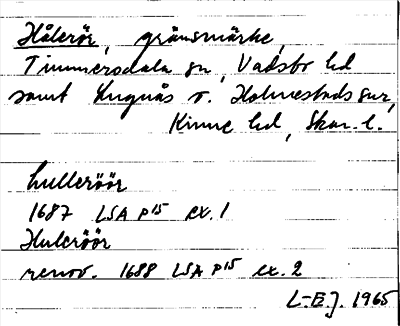 Hålerör, gränsmärke,
Timmersdala sn, Vadsbo hd
samt Lugnås o. Holmestads snr,
Kinne hd, Skar. l.
hulleröör
1687 LSA P15 ex. 1
Huleröör
renov. 1688 LSA P15 ex. 2
L-E.J. 1965